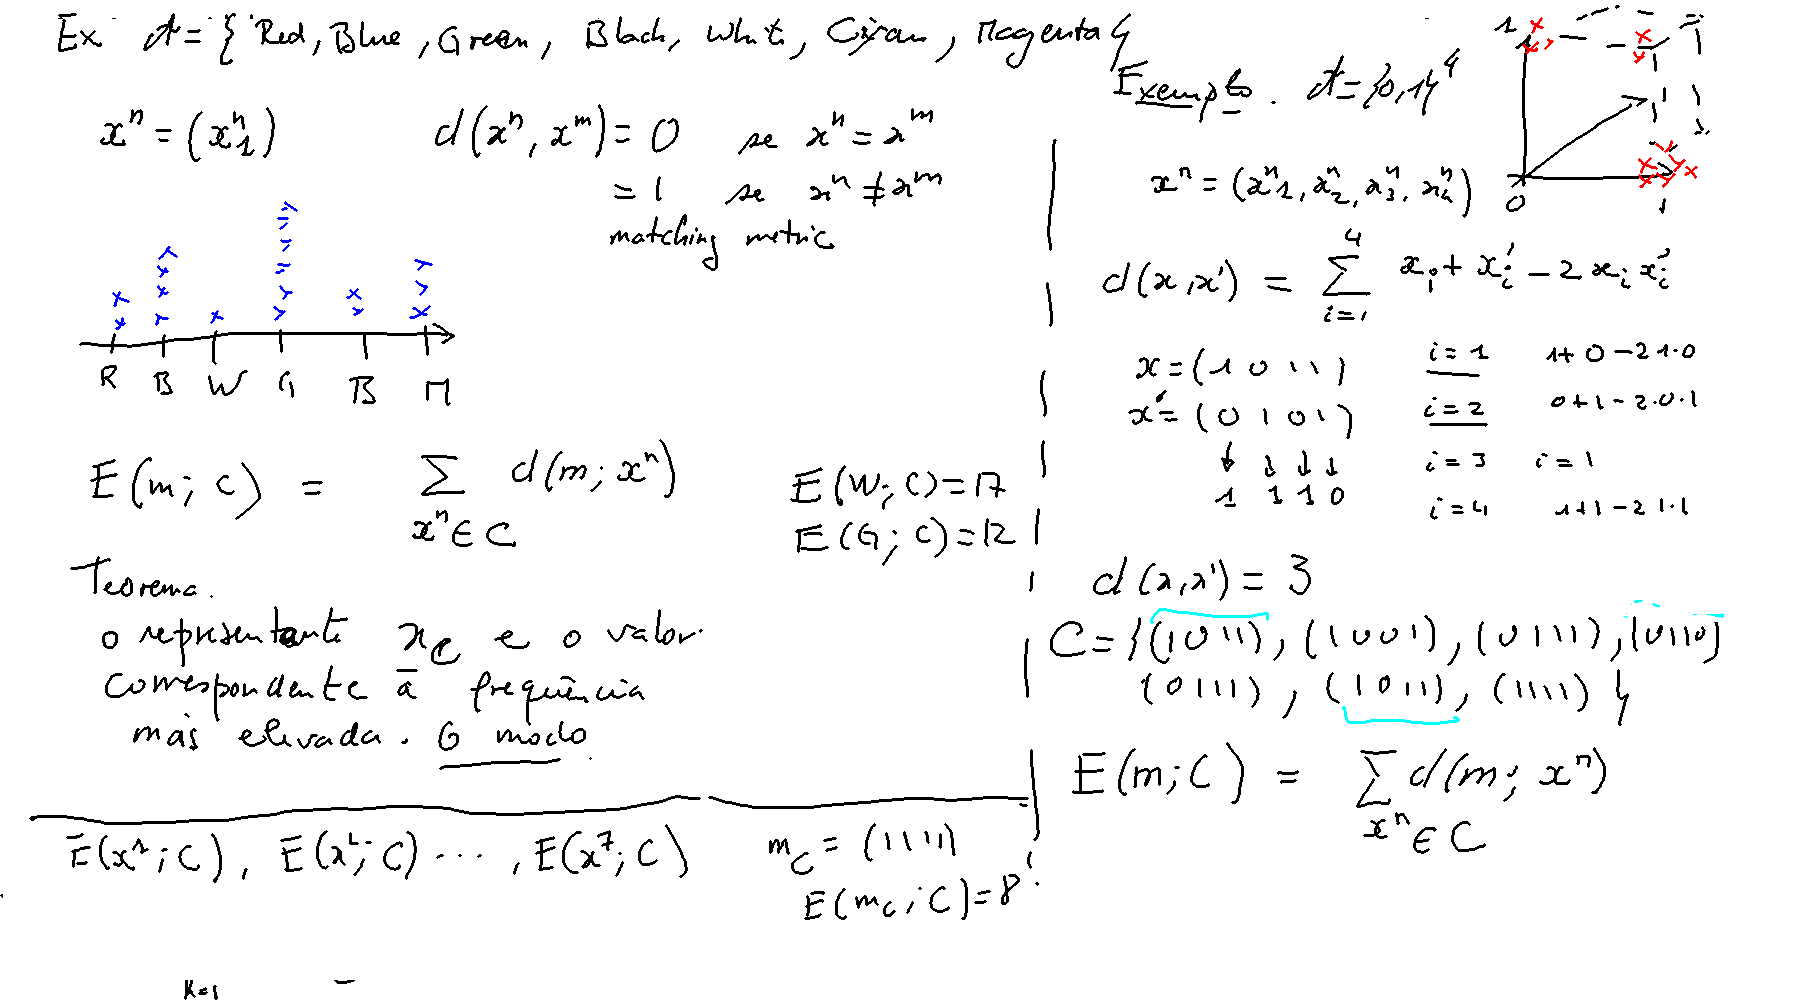 Ex A = { Red, Blue, Green, Black, White, Cyan, Magenta }
xⁿ = (xⁿ₁)
d(xⁿ, xᵐ) = 0 se xⁿ = xᵐ
= 1 se xⁿ ≠ xᵐ
matching metric
R B W G B M
E(m; C) = Σ d(m; xⁿ)
xⁿ ∈ C
E(W; C) = 17
E(G; C) = 12
Teorema.
o representante x_C e o valor
correspondente a frequência
mais elevada. O modo
E(x¹; C), E(x²; C) ..., E(x⁷; C)
m_C = (1111)
E(m_C; C) = 8
K=1
Exemplo. A = {0,1}⁴
1
0 1
xⁿ = (xⁿ₁, xⁿ₂, xⁿ₃, xⁿ₄)
d(x, x') = Σ xᵢ + x'ᵢ - 2 xᵢ x'ᵢ
4
i=1
x = (1 0 1 1) i=1 1+0-2 1·0
x' = (0 1 0 1) i=2 0+1-2·0·1
i=3 i=1
1 1 1 0 i=4 1+1-2 1·1
d(x, x') = 3
C = {(1011), (1001), (0111), (0110)
(0111), (1011), (1111)}
E(m; C) = Σ d(m; xⁿ)
xⁿ ∈ C